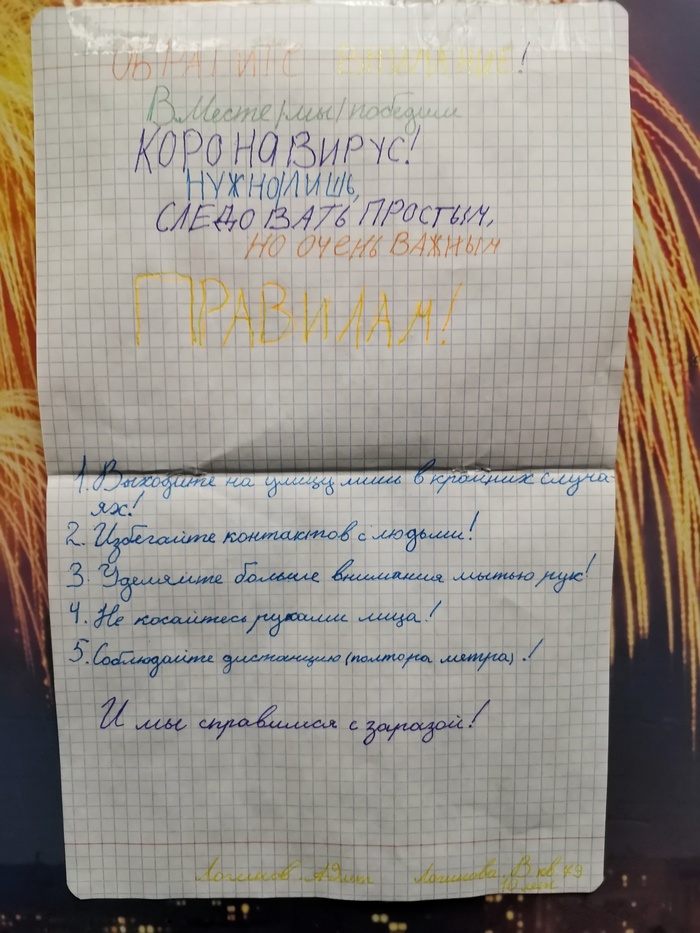 ОБРАТИТЕ ВНИМАНИЕ!
Вместе/мы/победим
КОРОНАВИРУС!
НУЖНО/ЛИШЬ,
СЛЕДОВАТЬ ПРОСТЫМ,
НО ОЧЕНЬ ВАЖНЫМ
ПРАВИЛАМ!
1. Выходите на улицу лишь в крайних случа-
ях!
2. Избегайте контактов с людьми!
3. Уделяйте больше внимания мытью рук!
4. Не касайтесь руками лица!
5. Соблюдайте дистанцию (полтора метра).!
И мы справимся с заразой!
Логинов Логинова В кв
10 лет